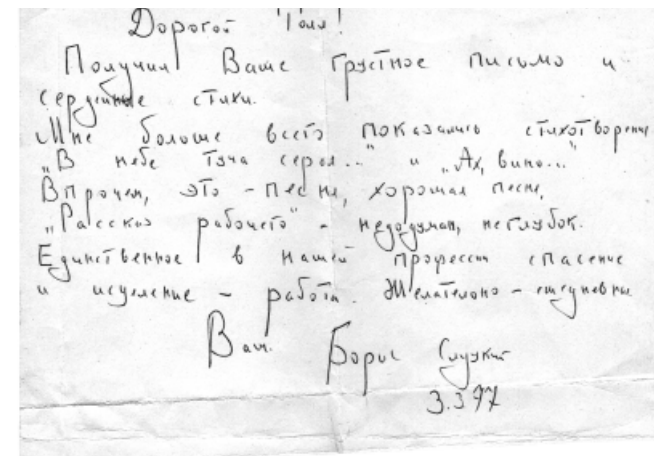 Дорогой Толя!
Получил Ваше грустное письмо и
сердечные стихи.
Мне больше всего показались стихотворения
„В небе туча серая..." и „Ах, вино..."
Впрочем, это - песни, хорошая песня,
„Рассказ рабочего" - недодуман, неглубок.
Единственное в нашей профессии спасение
и исцеление - работа. Желательно - ежедневная
Ваш. Борис Слуцкий